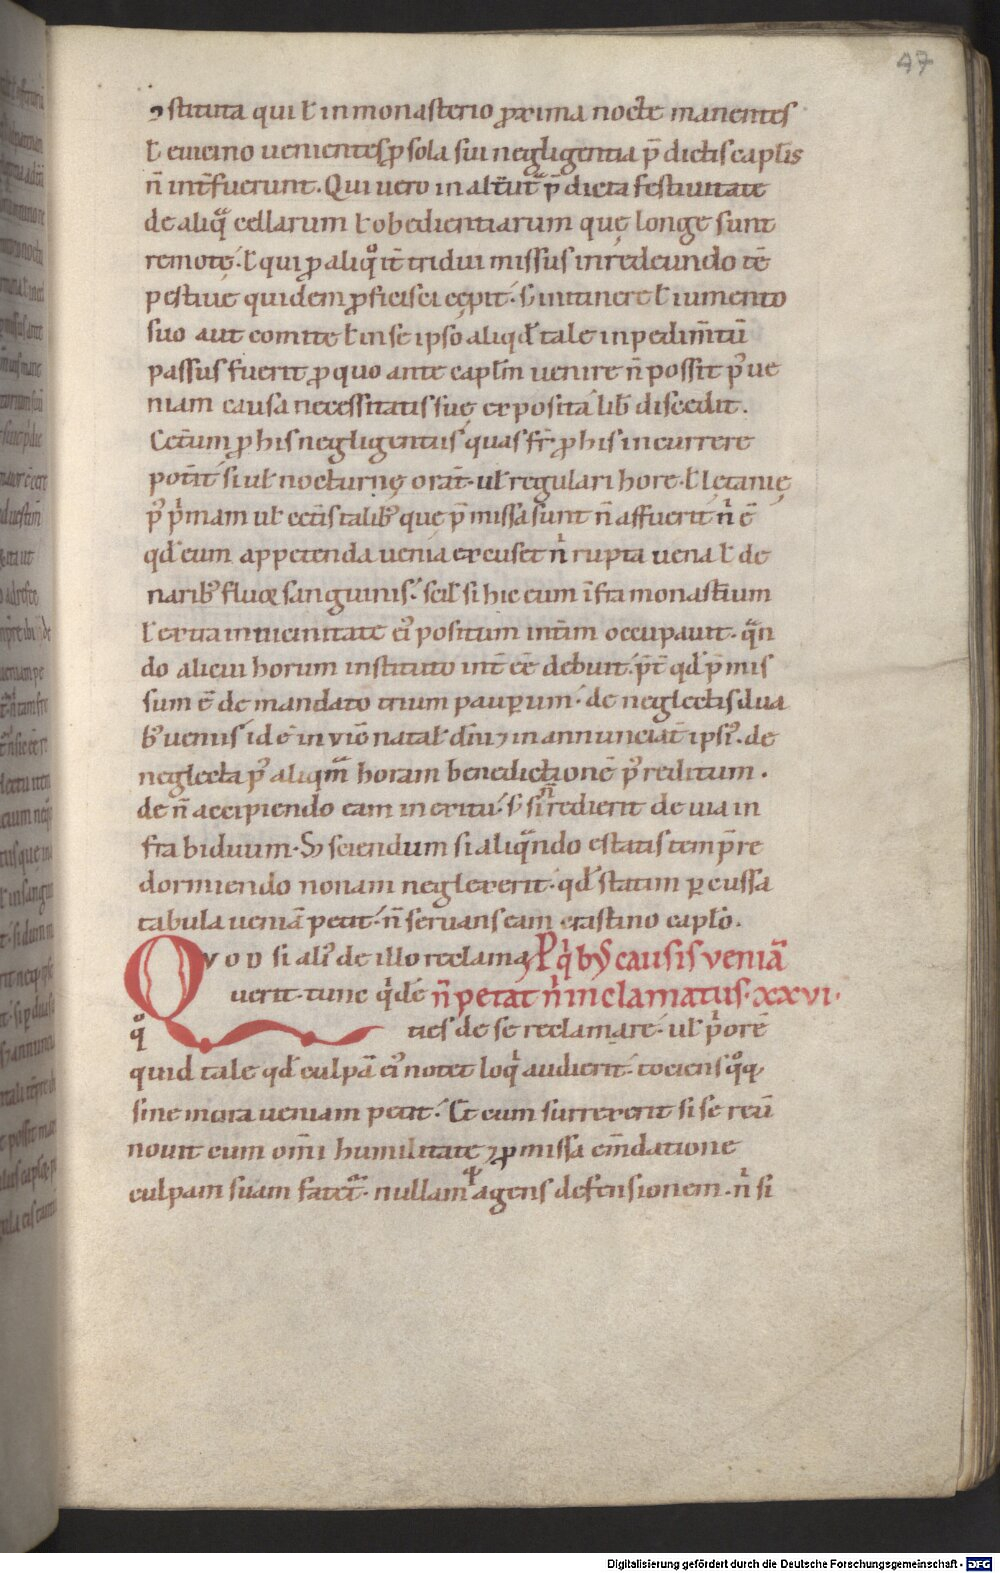 47
ꝯstituta qui ł in monasterio ꝓxima nocte manentes
ł e uicino uenientes ꝓ sola sui negligentia p̄ dictis caplis
n̄ int̄fuerunt. Qui uero in alt̄ut̄ p̄ dicta festiuitate
de aliq̄ cellarum ł obedientiarum quę longe sunt
remotę. ł qui ꝓ aliqͦ it̄ tridui missus in redeundo tē
pestiue quidem ꝓficisci cępit. s; in itinere ł iumento
suo aut comite ł in se ipso aliqd̄ tale inpedim̄tū
passus fuerit ꝓ quo ante caplm̄ uenire n̄ possit p᷒ ue
niam causa necessitatis suę exposita lib̄ discedit.
Cet̄um ꝓ his negligentiis quas fr̄ ꝓ his incurrere
pot̄it si uł nocturnę orat̄. uł regulari horę. ł lętanię
p᷒ p̍mam uł cet̄is talib᷒ que p̄missa sunt n̄ affuerit n̍ ē
qd̄ eum appetenda uenia excuset n̍ rupta uena ł de
narib᷒ fluxꝰ sanguinis. scil; si hic eum īfra monast̄ium
ł extra in uicinitate ei᷒ positum int̄im occupauit. q̄n
do alicui horum instituto int̄ eē debuit. p̄t̄ qd̄ p̄mis
sum ē de mandato trium pauꝑum. de neglectis dua
b᷒ ueniis id ē in vīō natał dn̄i ⁊ in annunciat̄ ipsi᷒. de
neglecta p᷒ aliqm̄ horam benedictionē p᷒ reditum.
de n̄ accipiendo eam in exitu. s; si n̄ redierit de uia in
fra biduum. S; sciendum si aliq̄ndo estatis temp̄re
dormiendo nonam neglexerit. qd̄ statim ꝑcussa
tabula ueniā petit. n̄ seruans eam crastino caplo.
QVOD si ali᷒ de illo reclama Pq̍b; causis veniā
uerit. tunc q̍dē n̄ petat n̍ in clamatus. xxvi.
qͦ ties de se reclamare. uł p̍orē
quid tale qd̄ culpā ei᷒ notet loq̍ audierit. tociens qͦqꝫ
sine mora ueniam petit. Et cum surrexerit si se reū
nouit cum om̄i humilitate ⁊ ꝓmissa em̄datione
culpam suam fatet᷑. nullam agens defensionem. n̍ si
Digitalisierung gefördert durch die Deutsche Forschungsgemeinschaft - DFG